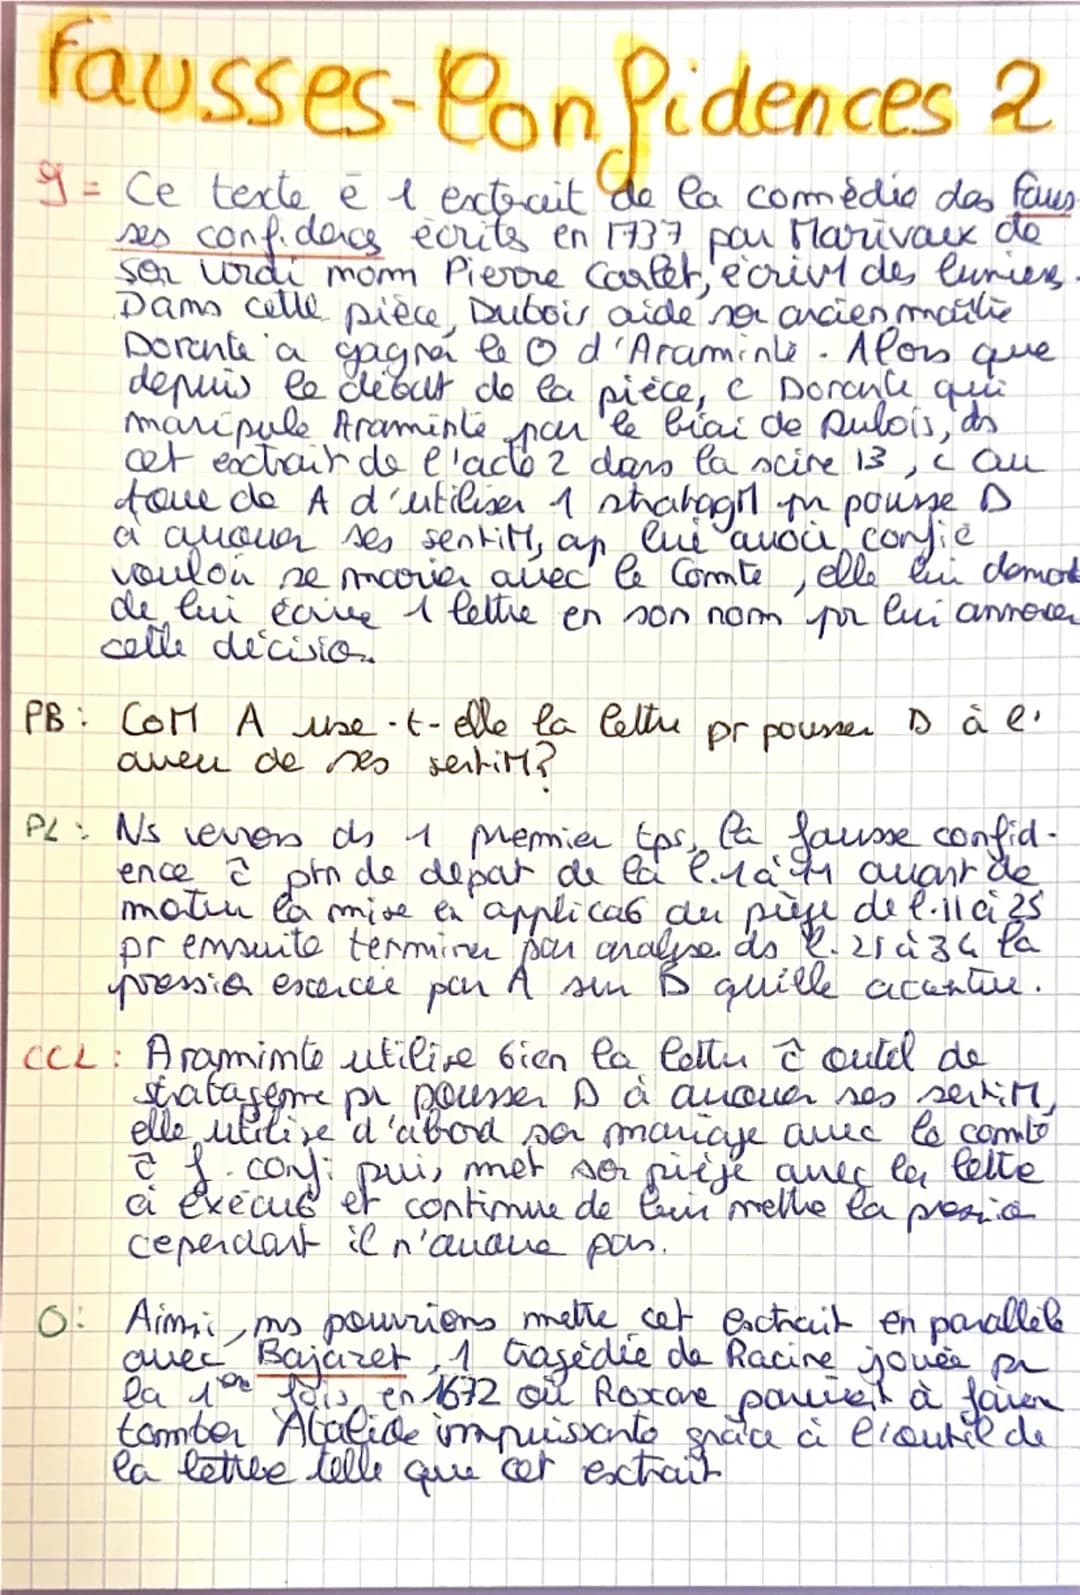 Fausses-Confidences 2
g = Ce texte é 1 extrait de la comédie des Faus
ses confidences écrites en 1737 par Marivaux de
son vrdi nom Pierre Carlet, écrivM des lumiers.
Dans cette pièce, Dubois aide son ancien maître
Dorante a gagner le O d'Araminte. Alors que
depuis le debut de la pièce, c Dorante qui
manipule Araminte par le biai de Dubois, ds
cet extrait de l'acte 2 dans la scène 13, c au
toue de A d'utiliser 1 stratagM pr pousse D
à avouer ses sentiM, ap lui avoir confié
vouloir se marier avec le Comte, elle lui demand
de lui écrire 1 lettre en son nom pr lui annoncer
cette décision.
PB: CoM A use-t-elle la lettre pr pousser D à l'
aveu de ses sentiM?
PL: Ns verrons ds 1 premier tps, la fausse confid-
ence c̃ ptn de depat de la l.1 à 11 avant de
motrer la mise en applicaG du piège de l.11 à 25
pr ensuite terminer par analyse ds l. 25 à 34 la
pression exercée par A sur D quille acantue.
CCL: Araminte utilise bien la lettre c̃ outil de
stratagème pr pousser D à avouer ses sentiM,
elle utilise d'abord son mariage avec le comte
c̃ f. confi puis met son piège avec la lette
à exécuG et continue de lui mettre la pression
cependant il n'avoue pas.
O: Ainsi, ns pourrions mettre cet extrait en parallèle
avec Bajazet, 1 tragédie de Racine jouée pr
la 1ère fois en 1672 où Roxane parvient à faire
tomber Atalide impuissante grâce à l'outil de
la lettre telle que cet extrait